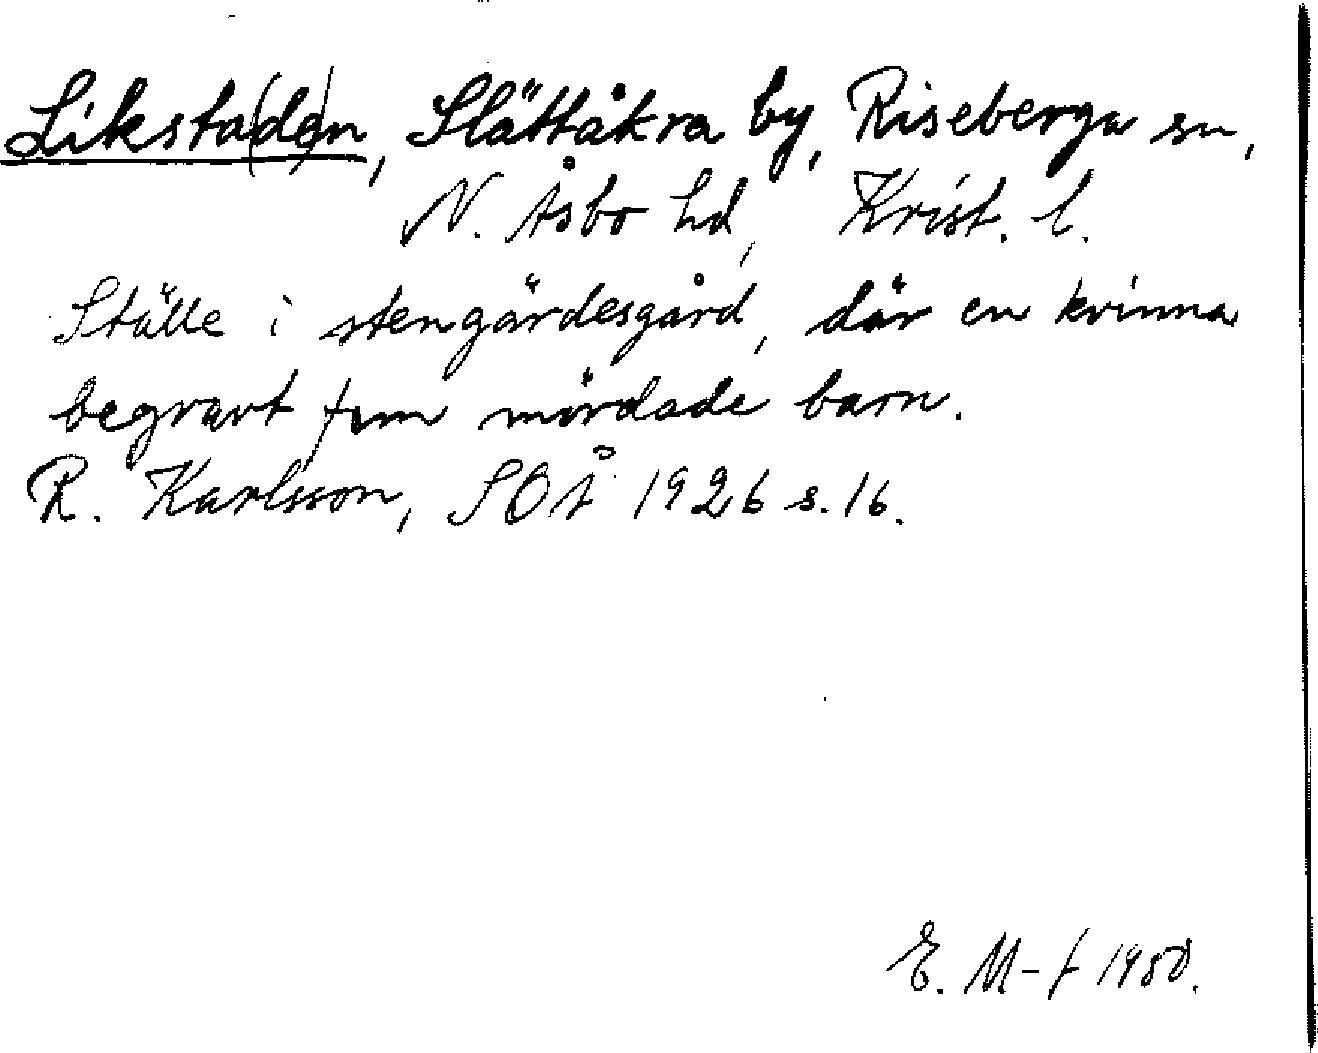 Liksta(de)n, Slättåkra by, Riseberga sn,
N. Åsbo hd, Krist. l.
Ställe i stengärdesgård, där en kvinna
begravt fem mördade barn.
R. Karlsson, SOÅ 1926 s. 16.
E. M-f 1950.